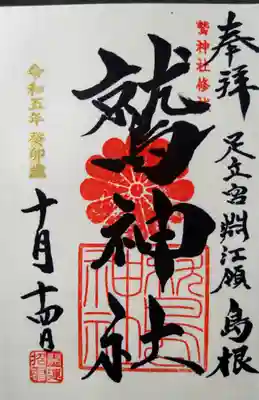 奉拝
足立宮渕江領 島根
鷲神社修社
鷲神社
令和五年 癸卯歳
十月 十四日